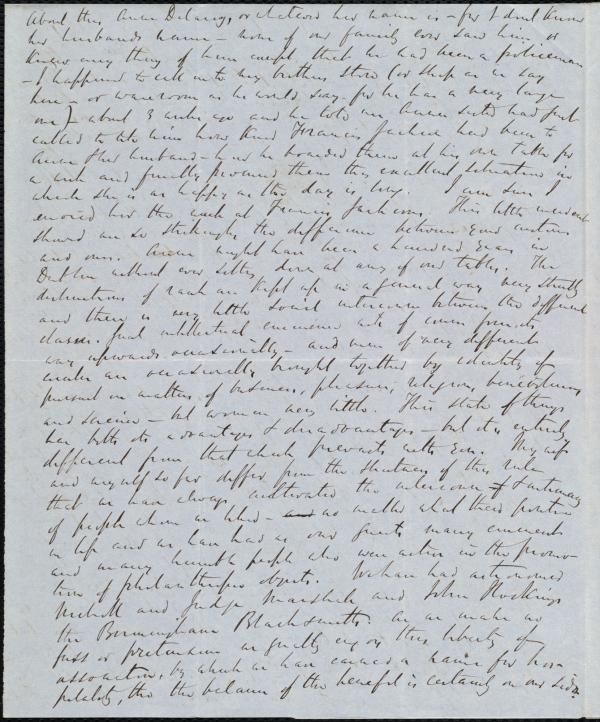 About this Anne Delany, or whatever her name is - for I don't know
her husband's name - none of our family ever saw him, or
knew any thing of him except that he had been a policeman
- I happened to call into my brother's store (or shop as we say
here - or wareroom as he would say, for he has a very large
one) about 3 weeks ago and he told me Anne's sister had just
called to tell him how kind Francis Jackson had been to
Anne & her husband - how he boarded them at his own table for
a week and finally procured them this excellent situation in
which she is as happy as the day is long. I am sure I
envied her the week at Francis Jackson's. This little incident
showed me so strikingly the difference between your customs
and ours. Anne might have been a hundred years in
Dublin without ever sitting down at any of our tables. The
distinctions of rank are kept up in a general way very strictly
and there is very little social intercourse between the different
classes. Great intellectual eminence of course finds
way upwards occasionally - and men of very different
ranks are occasionally brought together by identity of
pursuit in matters of business, pleasure, religion, benevolence
and science - but women very little. This state of things
has both its advantages & disadvantages - but it is entirely
different from that which prevails with you. My wife
and myself so far differ from the strictness of this rule
that we have always cultivated the intercourse & intimacy
of people whom we liked - no matter what their position
in life and we have had as our guests many eminent
and many humble people who were active in the promo-
tion of philanthropic objects. We have had astronomer
Mitchell and Judge Marshall and John Hockings
the Birmingham Blacksmith. As we make no
fuss or pretension we greatly enjoy this liberty of
association, by which we have earned a name for hos-
pitality, tho' the balance of the benefit is certainly on our side.